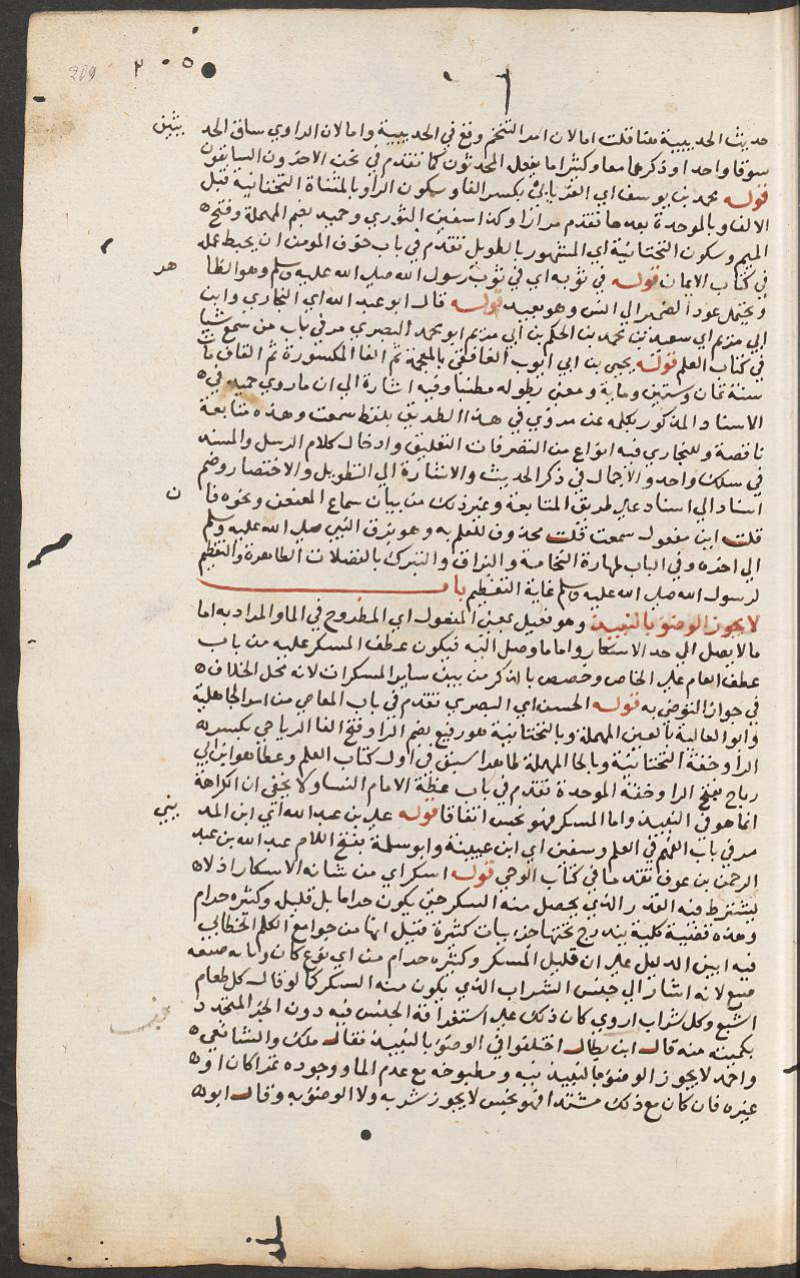 209 ٢٠٥
حديث الحديبية متنا قلت اما لان امر التنخم وقع في الحديبية واما لان الراوي ساق الحد يثين
سوقا واحدا وذكرهما معا وكثيرا ما يفعل المحدثون كما تقدم في نحن الاخرون السابقون
قوله محمد بن يوسف اي الفريابي بكسر الفا وسكون الرا وبالمثناة التحتانية قبل
الالف وبالموحدة بعدها تقدم مرارا وكذا سفين الثوري وحميد بضم المهملة وفتح
الميم وسكون التحتانية اي المشهور بالطويل تقدم في باب خوف المومن ان يحبط عمله
في كتاب الايمان قوله في ثوبه اي في ثوب رسول الله صلى الله عليه وسلم وهو الظا هر
ويحتمل عود الضمير الى انس وهو بعيد قوله قال ابو عبد الله اي البخاري وابن
ابي مريم اي سعيد بن محمد بن الحكم بن ابي مريم ابو محمد البصري مر في باب من سمع شيا
في كتاب العلم قوله يحيى بن ابي ايوب الغافقي بالمعجمة ثم الفا المكسورة ثم القاف مات
سنة ثمان وستين وماية ومعنى بطوله مطنبا وفيه اشارة الى ان ما روي حميد في
الاسناد المذكور بكلمة عن مروي في هذا الطريق بلفظ سمعت وهذه متابعة
ناقصة وللبخاري فيه انواع من التصرفات التعليق وادخال كلام المرسل والمسند
في سلك واحد والاجمال في ذكر الحديث والاشارة الى التطويل والاختصار وضم
اسناد الى اسناد على طريق المتابعة وغير ذلك من بيان سماع المعنعن ونحوه فا ن
قلت اين مفعول سمعت قلت محذوف للعلم به وهو بزق النبي صلى الله عليه وسلم
الى اخره وفي الباب طهارة النخامة والبزاق والتبرك بالفضلات الطاهرة والتعظيم
لرسول الله صلى الله عليه وسلم غاية التعظيم باب
لا يجوز الوضو بالنبيذ وهو فعيل بمعنى المفعول اي المطروح في الما والمراد به اما
ما لا يصل الى حد الاسكار واما ما وصل اليه فيكون عطف المسكر عليه من باب
عطف العام على الخاص وخصص بالذكر من بين ساير المسكرات لانه محل الخلاف
في جواز التوضي به قوله الحسن اي البصري تقدم في باب المعاصي من امر الجاهلية
وابو العالية بالعين المهملة وبالتحتانية هو رفيع بضم الرا وفتح الفا الرياحي بكسر
الرا وخفة التحتانية وبالحا المهملة ظاهرا سبق في اول كتاب العلم وعطا هو ابن ابي
رباح بفتح الرا وخفة الموحدة تقدم في باب عظة الامام النسا ولا يخفى ان الكراهة
انما هو في النبيذ واما المسكر فهو نجس اتفاقا قوله علي بن عبد الله اي ابن المد يني
مر في باب الفهم في العلم وسفين اي ابن عيينة وابو سلمة بفتح اللام عبد الله بن عبد
الرحمن بن عوف تقدما في كتاب الوحي قوله اسكر اي من شانه الاسكار اذ لا
يشترط فيه القدر الذي يحصل منه السكر حتى يكون حراما بل قليله وكثيره حرام
وهذه قضية كلية يندرج تحتها جزييات كثيرة قيل انها من جوامع الكلم الخطابي
فيه ابين الدليل على ان قليل المسكر وكثيره حرام من اي نوع كان وباية صنعه
صنع لانه اشار الى جنس الشراب الذي يكون منه السكر كما لو قال كل طعام
اشبع وكل شراب اروي كان ذلك على استغراقه الجنس فيه دون الجز المتحدد
بكميته منه قال ابن بطال اختلفوا في الوضوء بالنبيذ فقال ملك والشافعي
واحمد لا يجوز الوضوء بالنبيذ نيه ومطبوخه مع عدم الما ووجوده تمرا كان او
غيره فان كان مع ذلك مشتدا فهو نجس لا يجوز شربه ولا الوضوء به وقال ابو